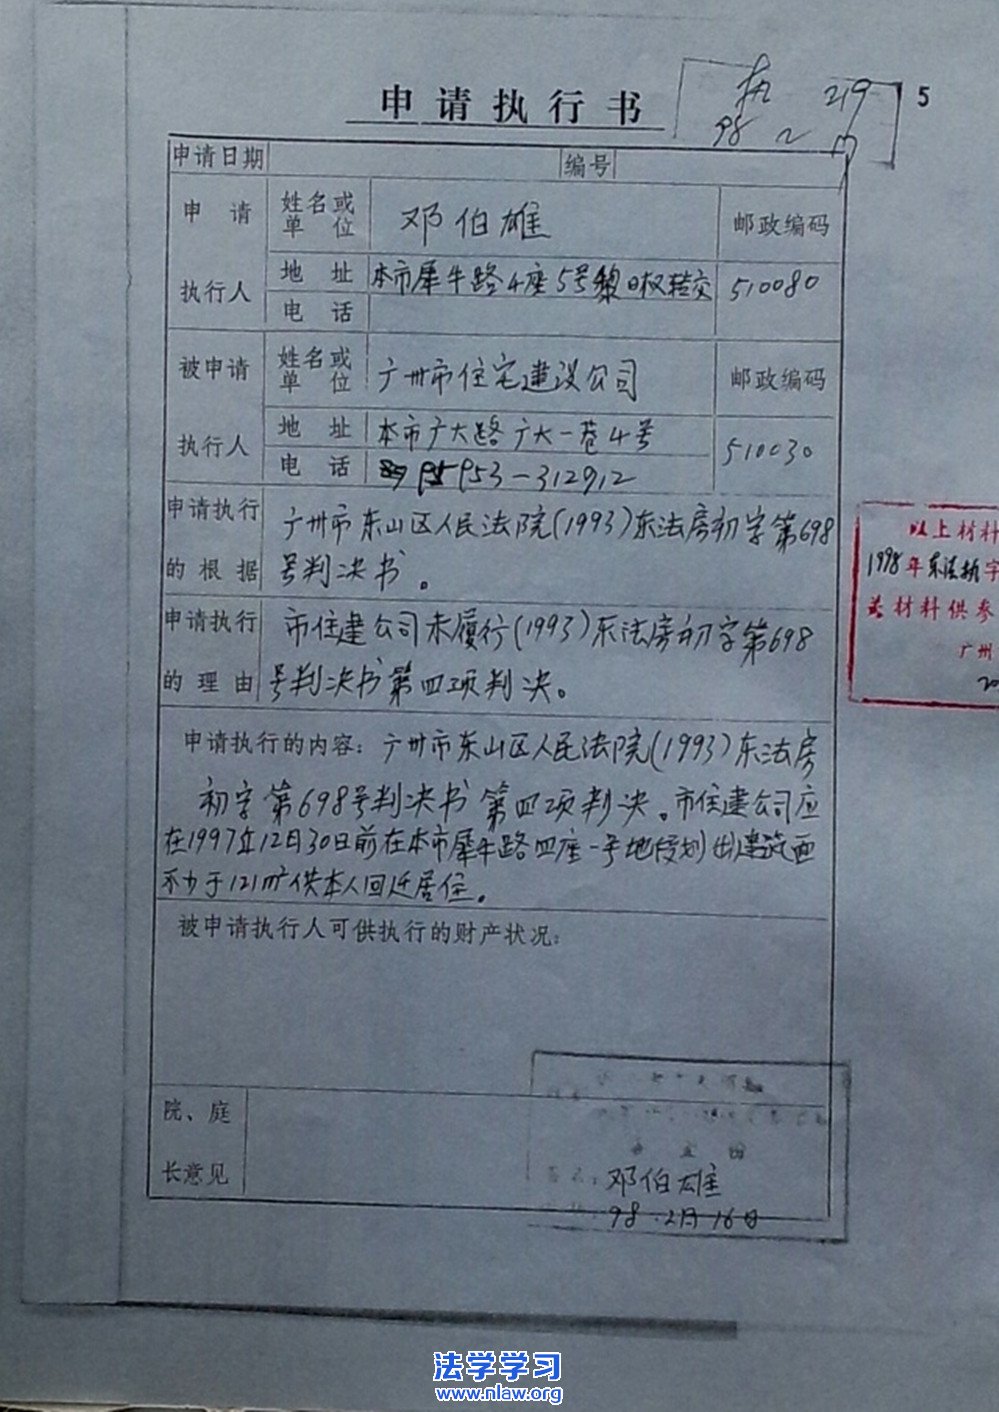 申请执行书
执 219
98 2
5
申请日期 编号
申请 姓名或单位 邓伯雄 邮政编码
执行人 地址 本市犀牛路4座5号黎日权转交 510080
电话
被申请 姓名或单位 广州市住宅建设公司 邮政编码
执行人 地址 本市广大路广大一巷4号 510030
电话 953-312912
申请执行 广州市东山区人民法院(1993)东法房初字第698
的根据 号判决书。
申请执行 市住建公司未履行(1993)东法房初字第698
的理由 号判决书第四项判决。
申请执行的内容: 广州市东山区人民法院(1993)东法房
初字第698号判决书第四项判决。市住建公司应
在1997年12月30日前在本市犀牛路四座一号地段划出建筑面
不少于121m²供本人回迁居住。
被申请执行人可供执行的财产状况:
院、庭
长意见
邓伯雄
98.2月16日
以上材料
1998年东法执字
材料供参
广州
20
法学学习
www.nlaw.org